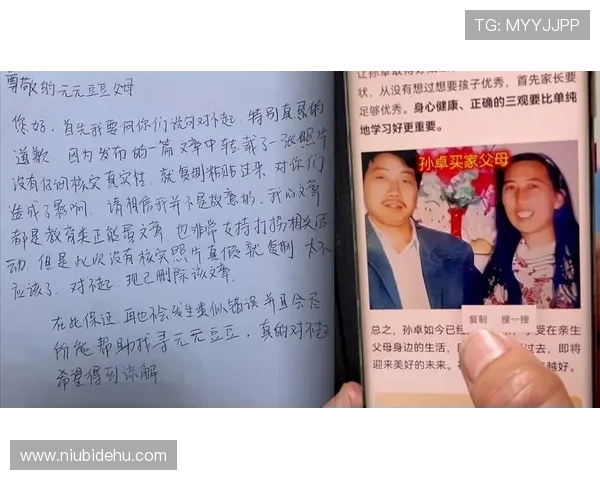 TG: MYYJJPP
尊敬的元元豆豆父母
您好,首先我要向你们说句对不起,特别真恳的
道歉,因为发布的一篇文章中转载了一张照片
没有仔细核实真实性,就复制粘贴过来,对你们
造成了影响,请相信我并不是故意的,我的文章
都是教育类正能量文章,也非常支持打拐相关活
动,但是此次没有核实照片真假就复制,太不
应该了,对不起,现已删除该文章.
在此保证,再也不会发生类似错误并且会尽
所能帮助找寻元元豆豆,真的对不起
希望得到谅解
让孙卓取得好成
状,从没有想过想要孩子优秀,首先家长要
足够优秀。身心健康、正确的三观要比单纯
地学习好更重要。
孙卓买家父母
复制 搜一搜
总之,孙卓如今已经 享受在亲生
父母身边的生活, 过去,即将
迎来美好的未来。 越好。
www.niubidehu.com